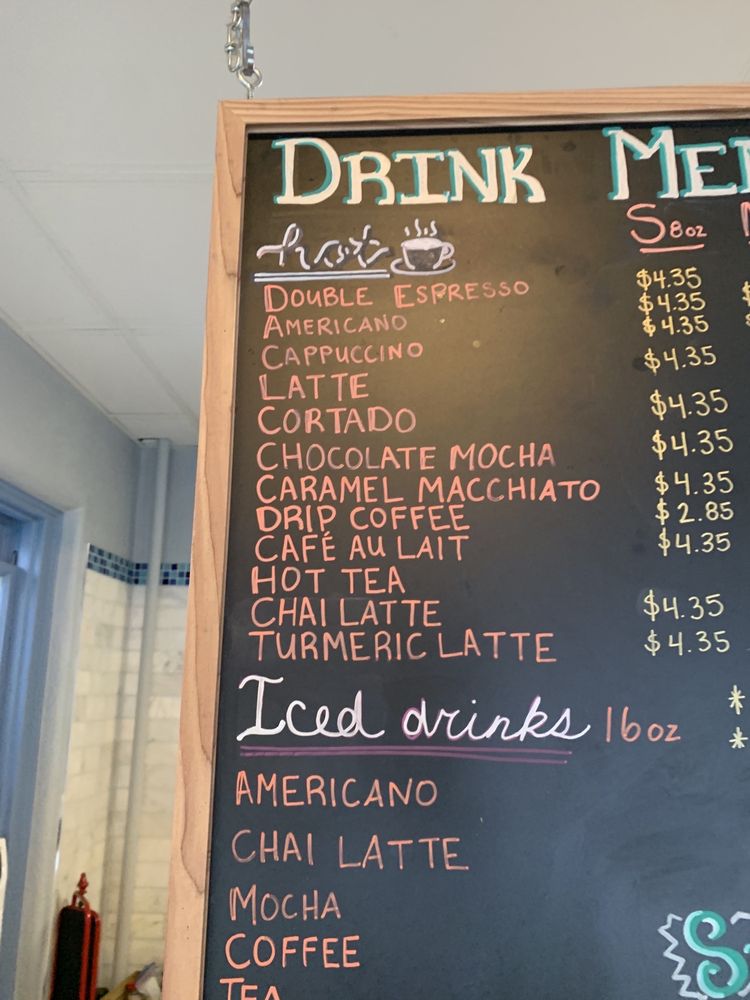 DRINK ME
hot S 8oz
DOUBLE ESPRESSO $4.35
AMERICANO $4.35
CAPPUCCINO $4.35
LATTE $4.35
CORTADO $4.35
CHOCOLATE MOCHA $4.35
CARAMEL MACCHIATO $4.35
DRIP COFFEE $2.85
CAFÉ AU LAIT $4.35
HOT TEA
CHAI LATTE $4.35
TURMERIC LATTE $4.35
Iced drinks 16oz
*
*
AMERICANO
CHAI LATTE
MOCHA
COFFEE
TEA